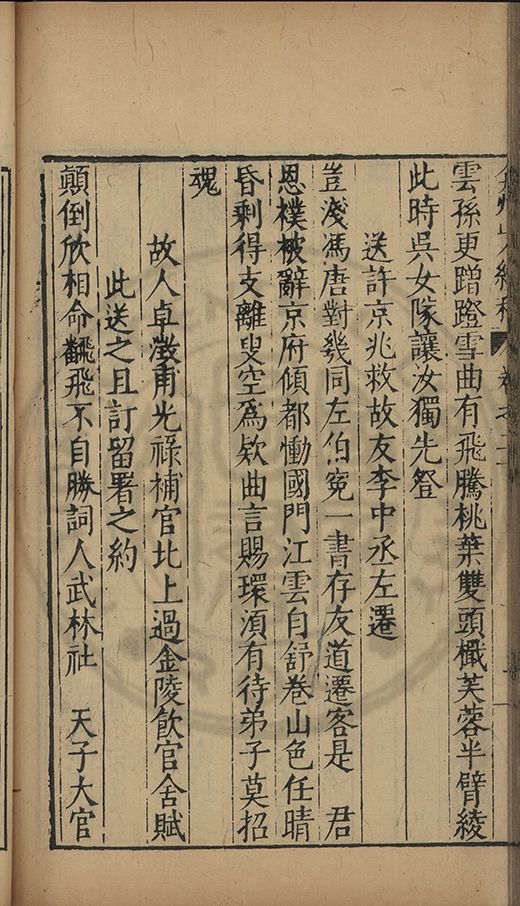 雲孫更蹭蹬雪曲有飛騰桃葉雙頭檝芙蓉半臂綾
此時吳女隊讓汝獨先登
送許京兆救故友李中丞左遷
豈淺馮唐對幾同左伯寃一書存友道遷客是　君
恩襆被辭京府傾都慟國門江雲自舒卷山色任晴
昏剩得支離叟空爲欵曲言賜環湏有待弟子莫招
魂
故人卓澂甫光祿補官北上過金陵飲官舍賦
此送之且訂留署之約
顛倒欣相命翻飛不自勝詞人武林社　天子大官